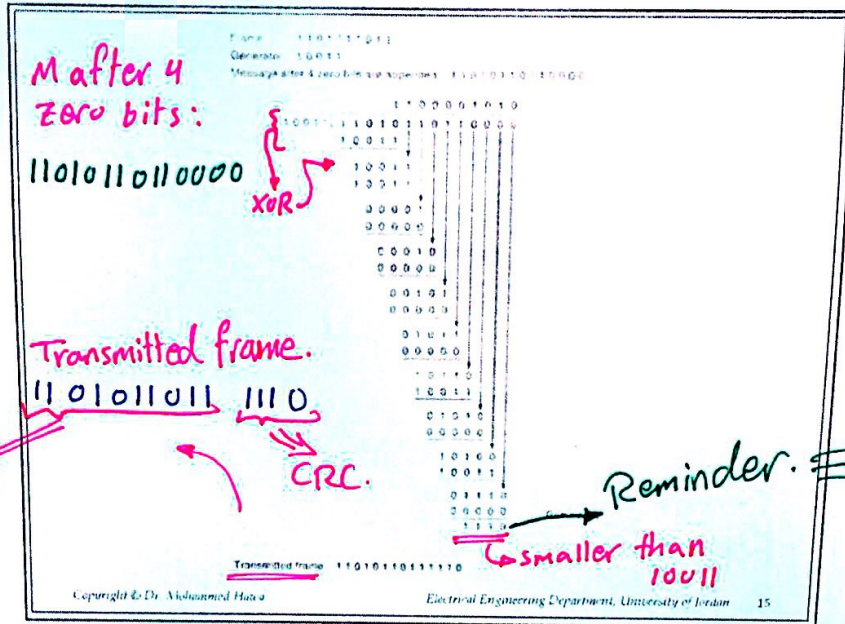 Frame 1101011011
Generator 10011
Message after 4 zero bits are appended
M after 4
Zero bits:
11010110110000
1 1 0 0 0 0 1 0 1 0
1 0 0 1 1 1 1 0 1 0 1 1 0 1 1 0 0 0 0
1 0 0 1 1
1 0 0 1 1
1 0 0 1 1
XOR
0 0 0 0 1
0 0 0 0 0
0 0 0 1 0
0 0 0 0 0
0 0 1 0 1
0 0 0 0 0
0 1 0 1 1
0 0 0 0 0
1 0 1 1 0
1 0 0 1 1
0 1 0 1 0
0 0 0 0 0
1 0 1 0 0
1 0 0 1 1
0 1 1 1 0
0 0 0 0 0
1 1 1 0
Transmitted frame.
1101011011 1110
CRC.
Reminder.
smaller than
10011
Transmitted frame 11010110111110
Copyright © Dr. Mohammed Hawa Electrical Engineering Department, University of Jordan 15